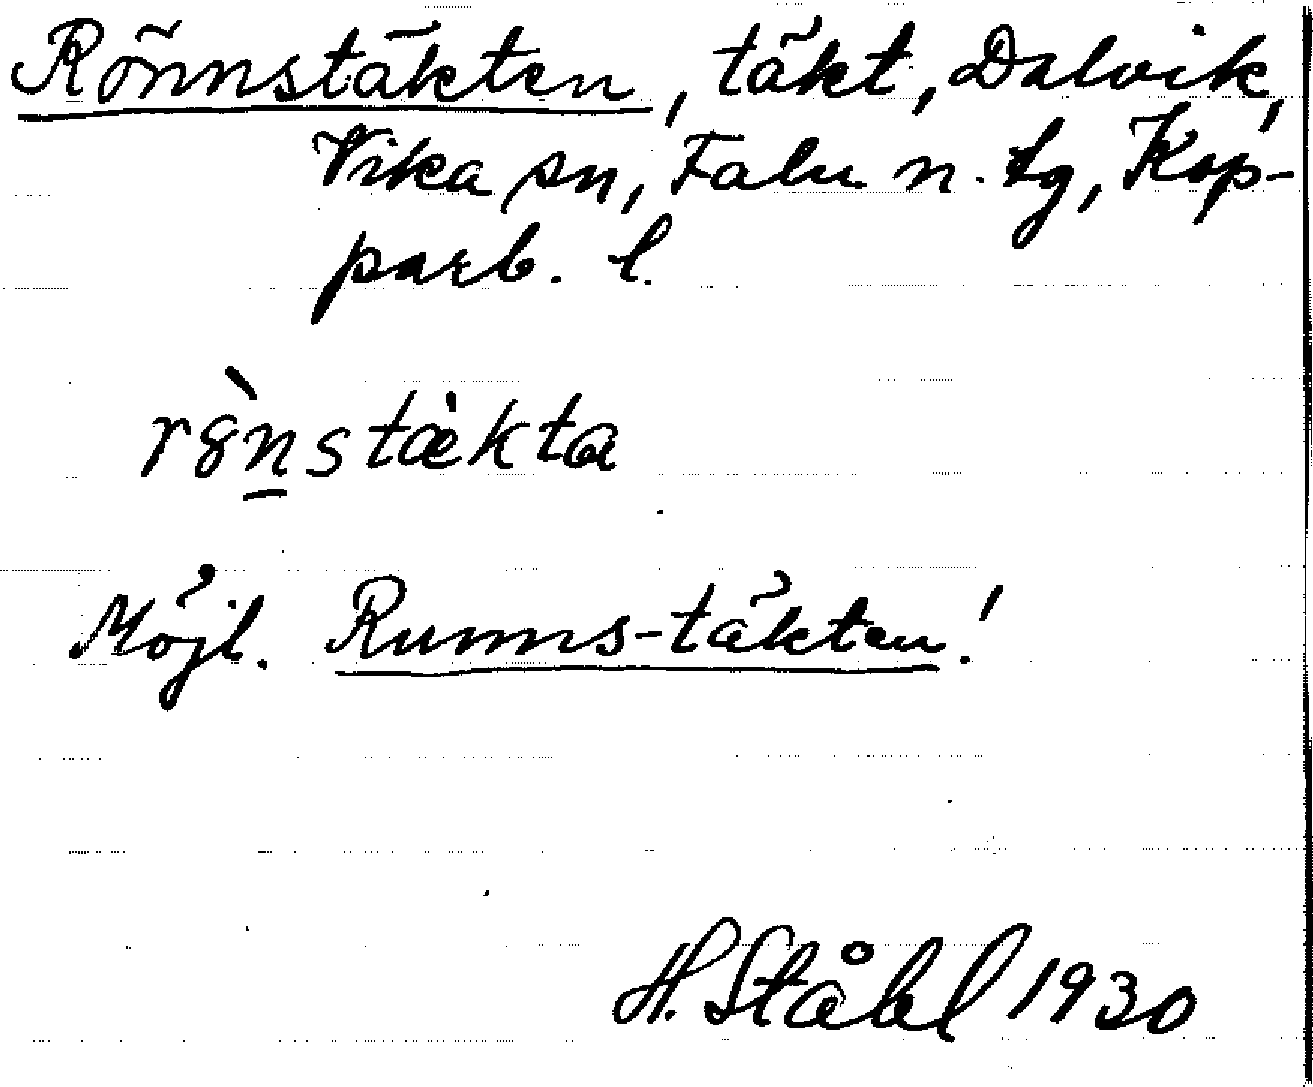 Rönnstäkten, täkt, Dalvik,
Vika sn, Falu n. tg, Kop-
parb. l.
r8̀n̲stæ̀kta
Möjl. Runns-täkten!
H. Ståhl 1930